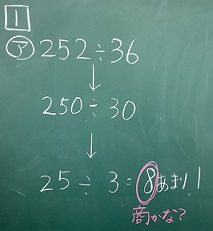 1
㋐ 252÷36
↓
250÷30
↓
25÷3=8あまり1
商かな?